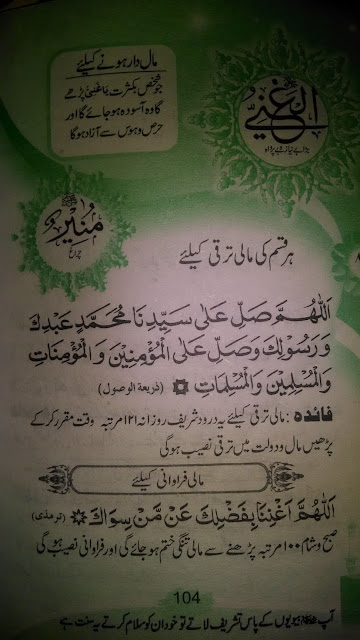 مال دار ہونے کیلئے
جو شخص بکثرت یَا غَنِیُّ پڑھے
گا وہ آسودہ ہو جائے گا اور
حرص و ہوس سے آزاد ہوگا
الغَنِيُّ
بڑا بے نیاز و بے پرواہ
مُنِيْرٌ
ﷺ
چراغ
ہر قسم کی مالی ترقی کیلئے
اَللّٰهُمَّ صَلِّ عَلٰى سَيِّدِنَا مُحَمَّدٍ عَبْدِكَ
وَرَسُوْلِكَ وَصَلِّ عَلَى الْمُؤْمِنِيْنَ وَالْمُؤْمِنَاتِ
وَالْمُسْلِمِيْنَ وَالْمُسْلِمَاتِ (ذریعۃ الوصول)
فائدہ : مالی ترقی کیلئے یہ درود شریف روزانہ ۱۲۱ مرتبہ وقت مقرر کر کے
پڑھیں مال و دولت میں ترقی نصیب ہوگی
مالی فراوانی کیلئے
اَللّٰهُمَّ اَغْنِنَا بِفَضْلِكَ عَنْ مَّنْ سِوَاكَ (ترمذی)
صبح و شام ۱۰۰ مرتبہ پڑھنے سے مالی تنگی ختم ہو جائے گی اور فراوانی نصیب ہوگی
104
آپ ﷺ بیویوں کے پاس تشریف لاتے تو خود ان کو سلام کرتے یہ سنت ہے